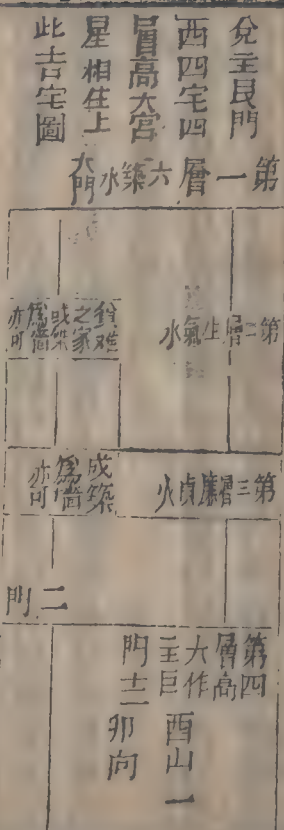 兌主艮門
西四宅四
層高大宮
星相生上
此吉宅圖
第一層六築水
大門
第二層生氣水
艱难
之家
或築
為牆
亦可
第三層廉貞火
或築
為牆
亦可
二門
第四
層高
大作
主巨
門土
酉山
卯向